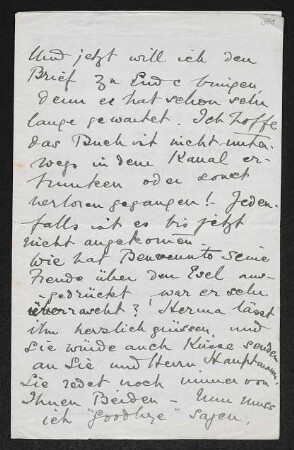 Und jetzt will ich den
Brief zu Ende bringen,
denn es hat schon sehr
lange gewartet. Ich hoffe
das Buch ist nicht unter-
wegs in dem Kanal er-
trunken oder sonst
verloren gegangen! - Jeden-
falls ist es bis jetzt
nicht angekomen -
Wie hat Benvenuto seine
Freude über den Esel aus-
gedrückt, war er sehr
überrascht? Herma lässt
ihm herzlich grüssen und
Sie würde auch Küsse senden
an Sie und Herrn Hauptmann.
Sie redet noch immer von
Ihnen Beiden - Nun muss
ich "Goodbye" sagen,